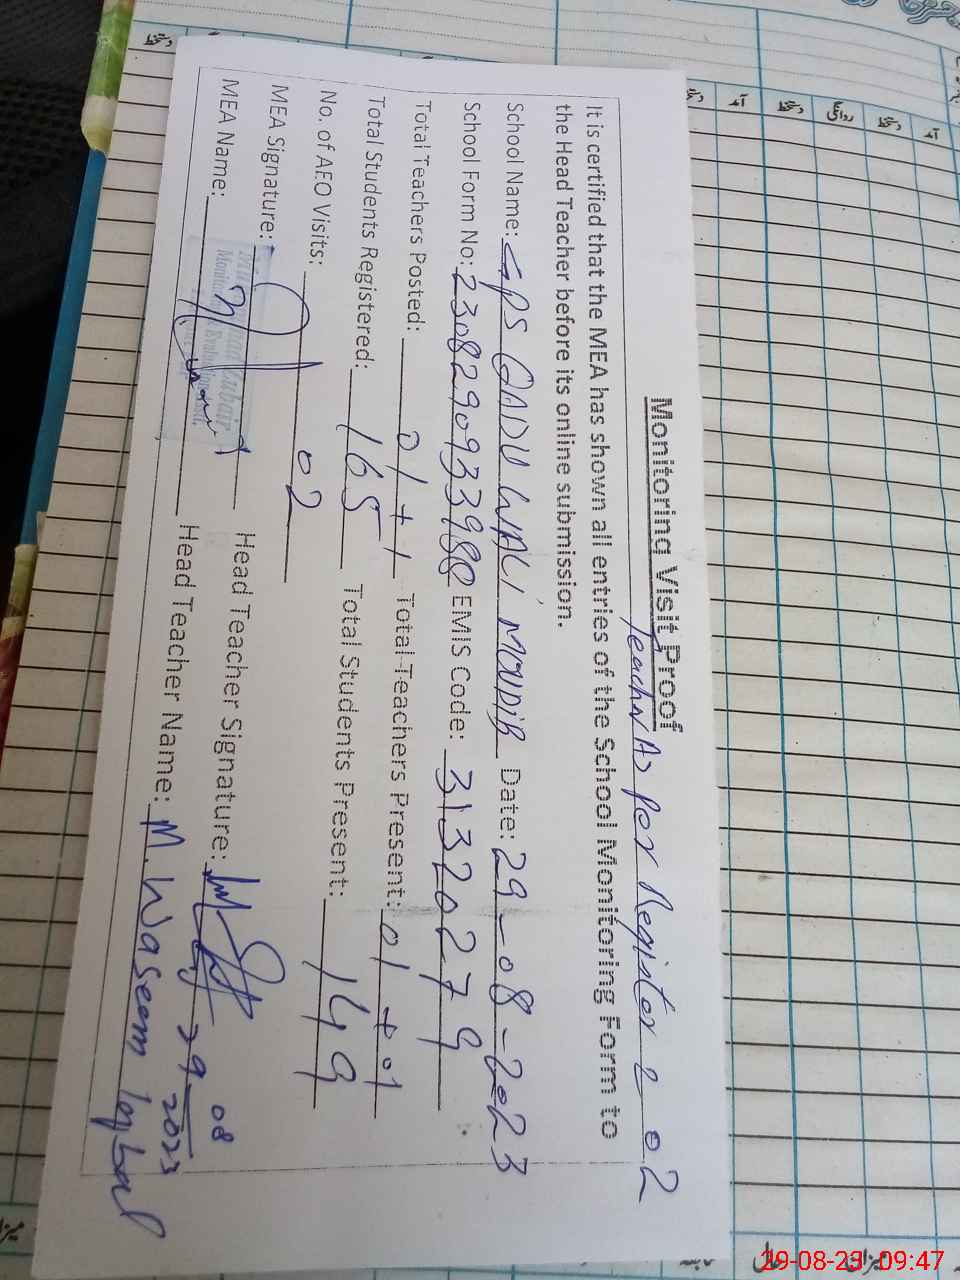 Monitoring Visit Proof
Teacher As Per Register = 02
It is certified that the MEA has shown all entries of the School Monitoring Form to
the Head Teacher before its online submission.
School Name: GPS QADU WALI MOUDIB Date: 29-08-2023
School Form No: 230829093398 EMIS Code: 31320279
Total Teachers Posted: 01+1 Total Teachers Present: 01+01
Total Students Registered: 165 Total Students Present: 149
No. of AEO Visits: 02
MEA Signature: Head Teacher Signature: 29 08 2023
MEA Name: Head Teacher Name: M. Waseem Iqbal
دستخط
آمد
دستخط
روانگی
دستخط
آمد
میزان
29-08-23 09:47